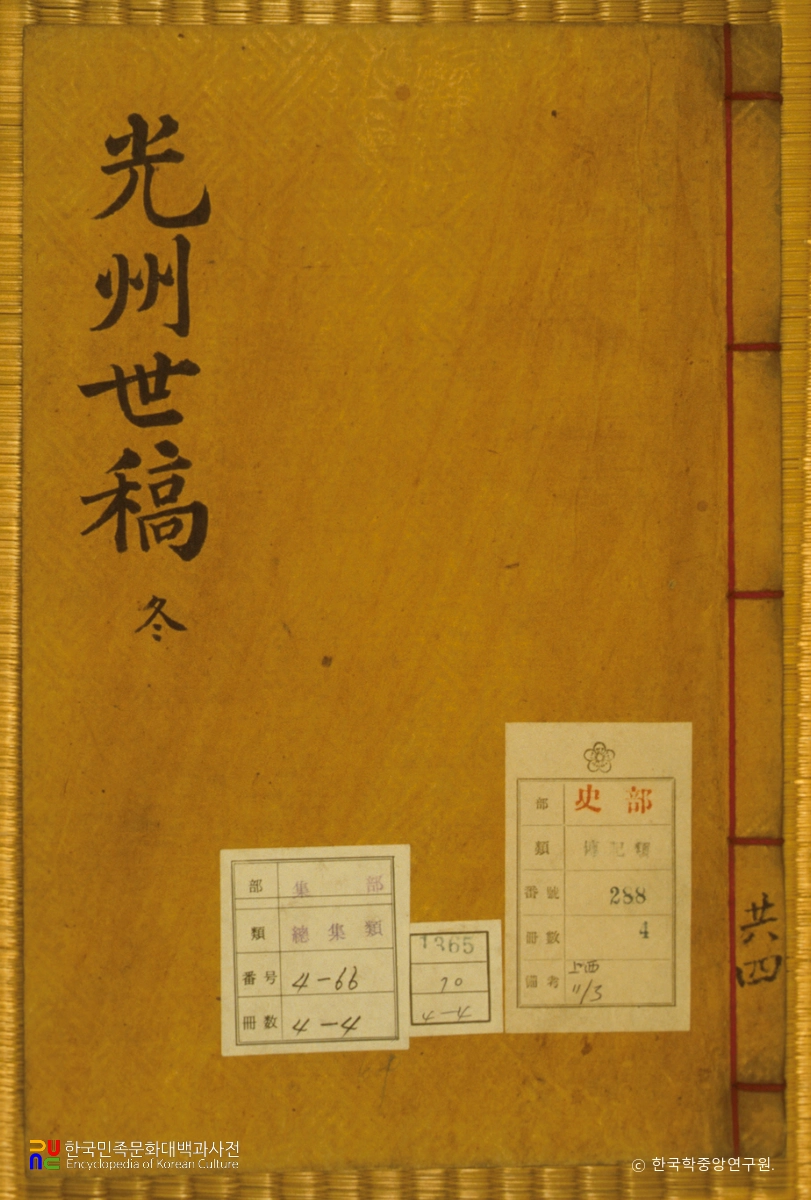 光州世稿
冬
共四
部 史部
類 傳記類
番號 288
冊數 4
備考 上西
11/3
1365
70
4-4
部 集部
類 總集類
番号 4-66
冊数 4-4
한국민족문화대백과사전
Encyclopedia of Korean Culture
ⓒ 한국학중앙연구원.